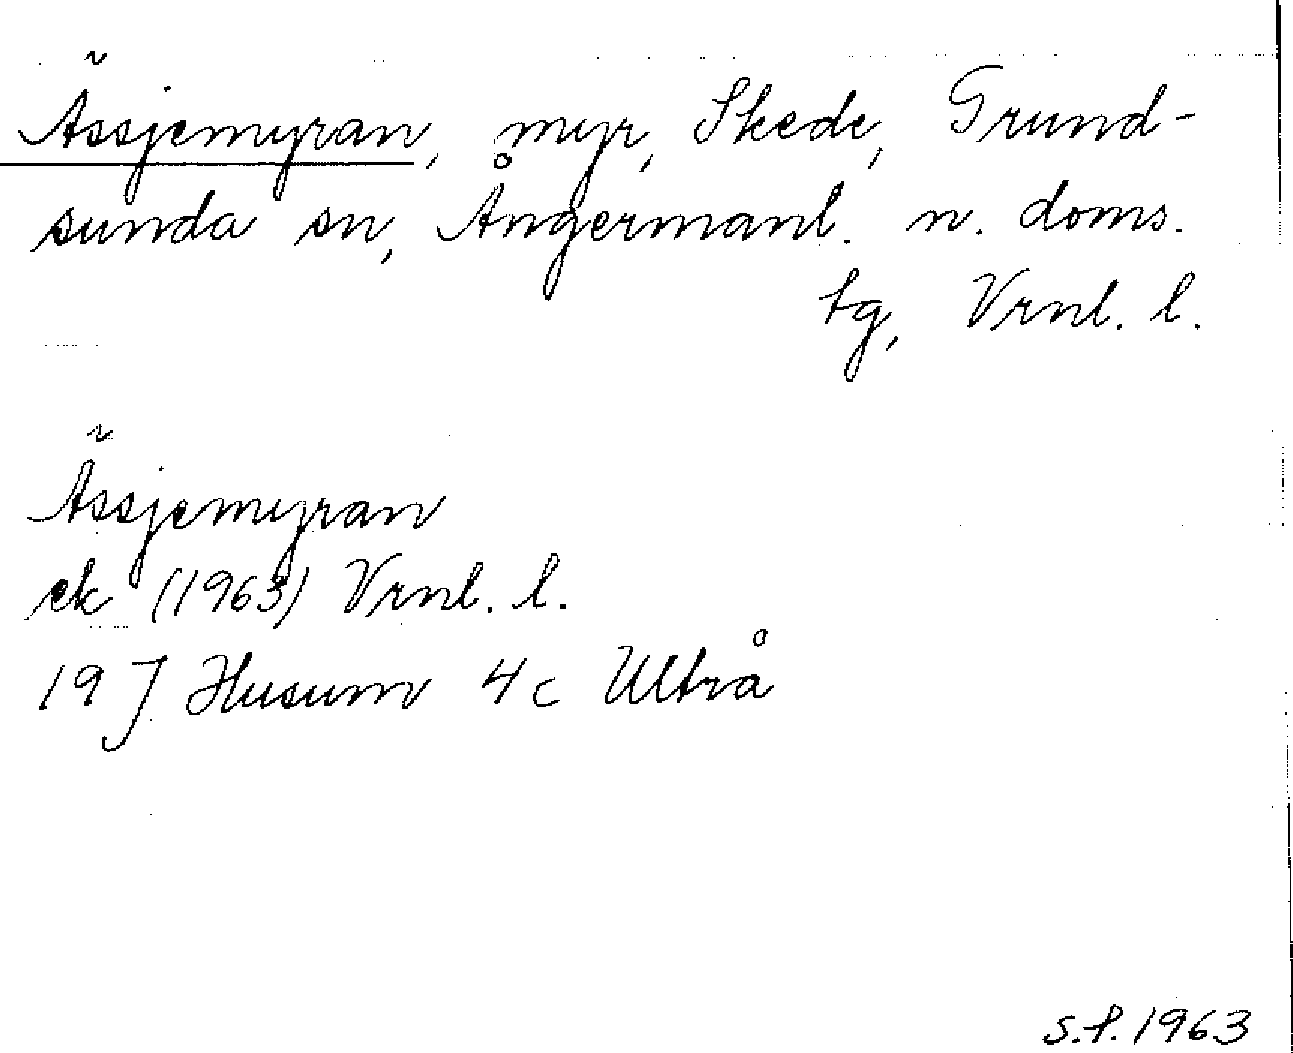 Ässjemyran, myr, Skede, Grund-
sunda sn, Ångermanl. n. doms.
tg, Vrnl. l.
Ässjemyran
ek (1963) Vrnl. l.
19 J Husum 4c Ultrå
S.P. 1963